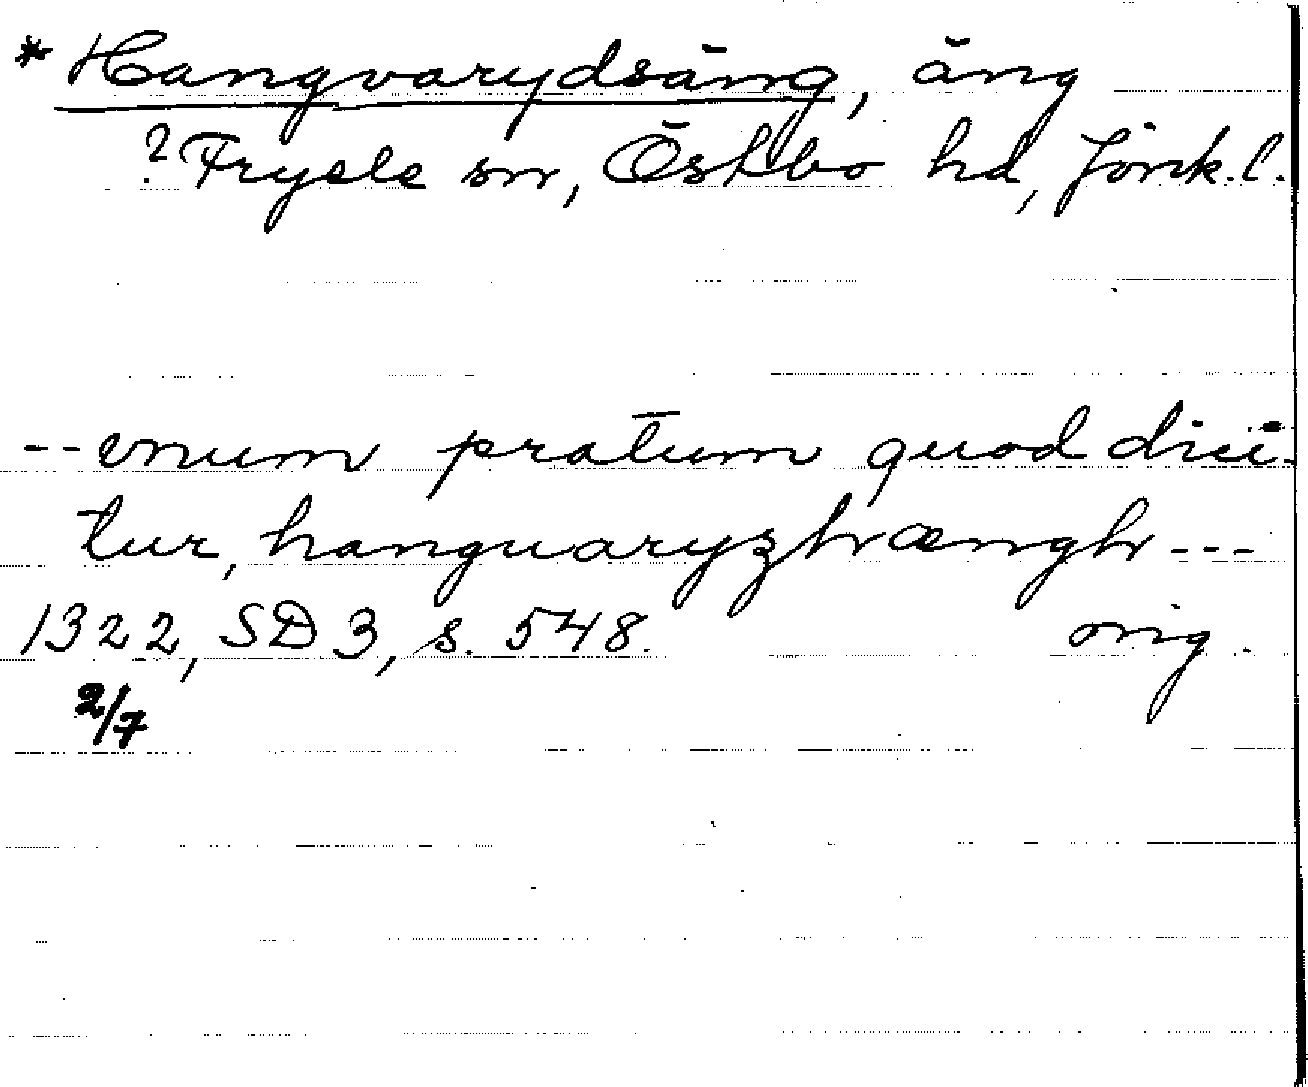 * Hangvarydsäng, äng
? Fryele sn, Östbo hd, Jönk. l.
-- unum pratum quod dici-
tur, hanguaryzhængh ---
1322, SD 3, s. 548. orig.
2/7